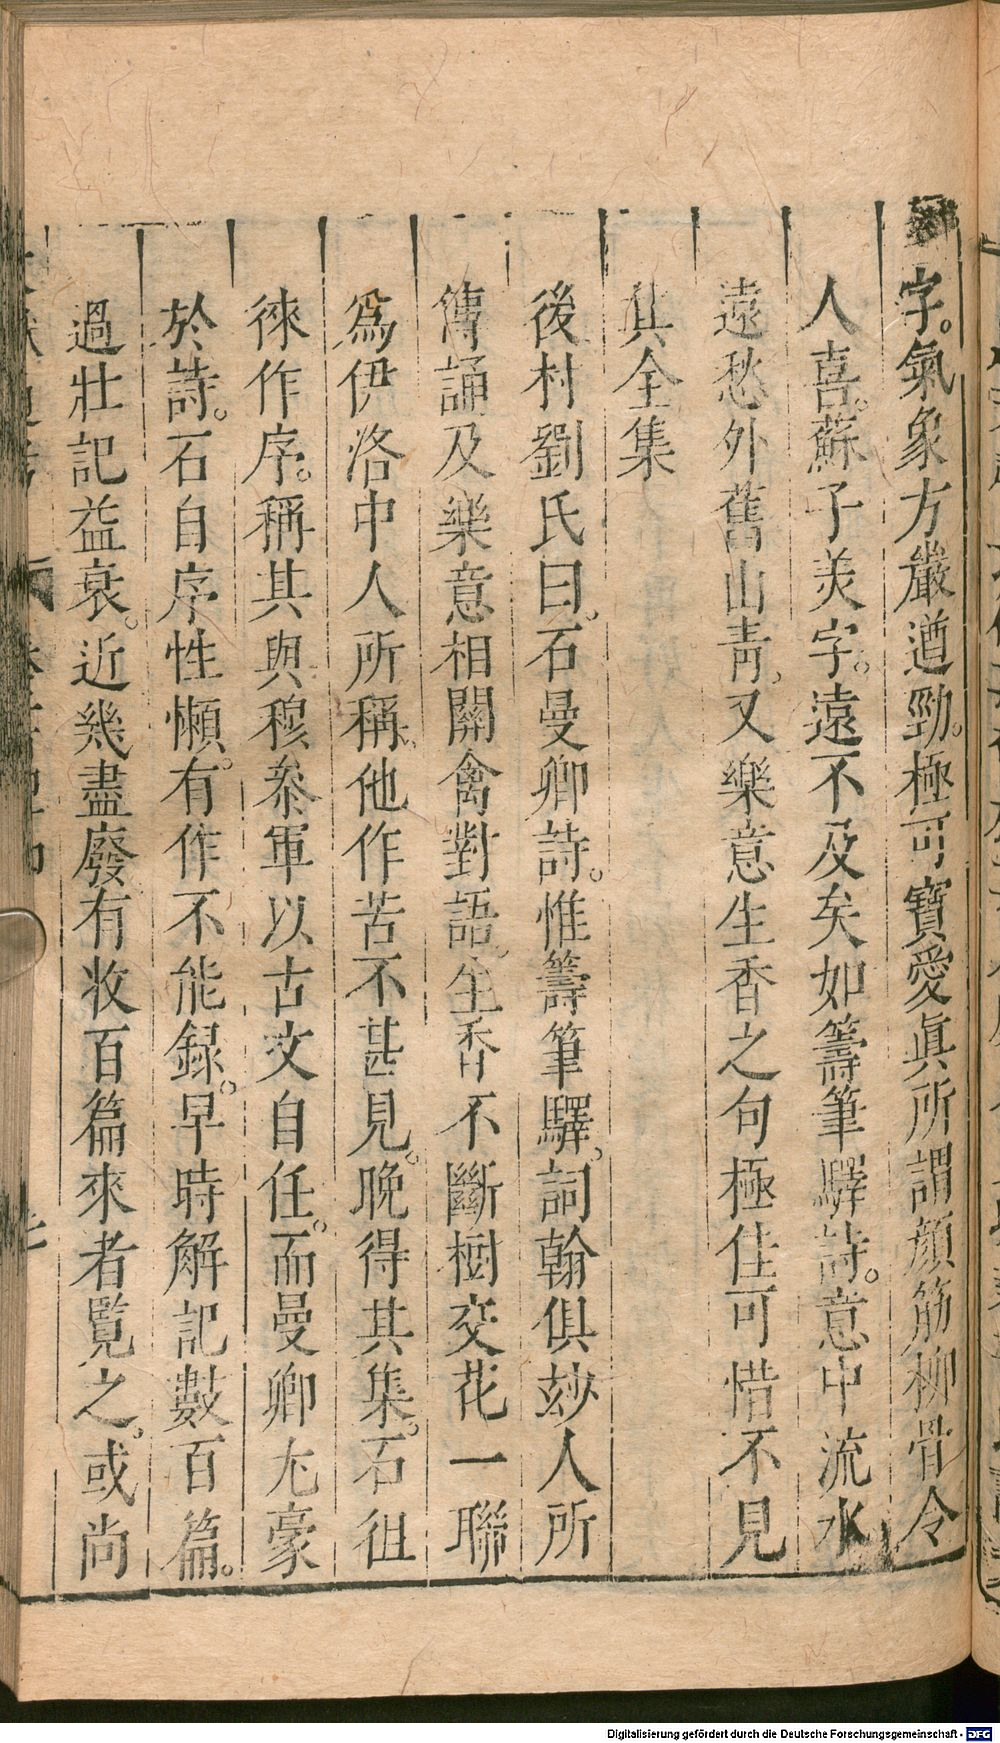 字。氣象方嚴遒勁。極可寶愛眞所謂顔筋柳骨令
人喜。蘇子美字。遠不及矣如籌筆驛詩。意中流水
遠愁外舊山青。又樂意生香之句極佳可惜不見
其全集
後村劉氏曰。石曼卿詩。惟籌筆驛。詞翰俱妙人所
傳誦及樂意相關禽對語。生香不斷樹交花一聯
爲伊洛中人所稱。他作苦不甚見。晩得其集。石徂
徠作序。稱其與穆叅軍以古文自任。而曼卿尤豪
於詩。石自序性懶。有作不能録。早時解記數百篇。
過壯記益衰。近幾盡廢有收百篇來者覧之。或尚
Digitalisierung gefördert durch die Deutsche Forschungsgemeinschaft - DFG